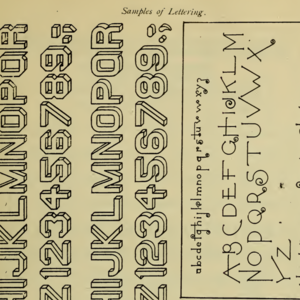 Samples of Lettering.
HIJKLMNOPQR
Z1234567890:;
HIJKLMNOPQR
Z1234567890:;
abcdefghijklmnopqrstuvwxyz
ABCDEFGHIJKLM
NOPQRSTUVWX
YZ